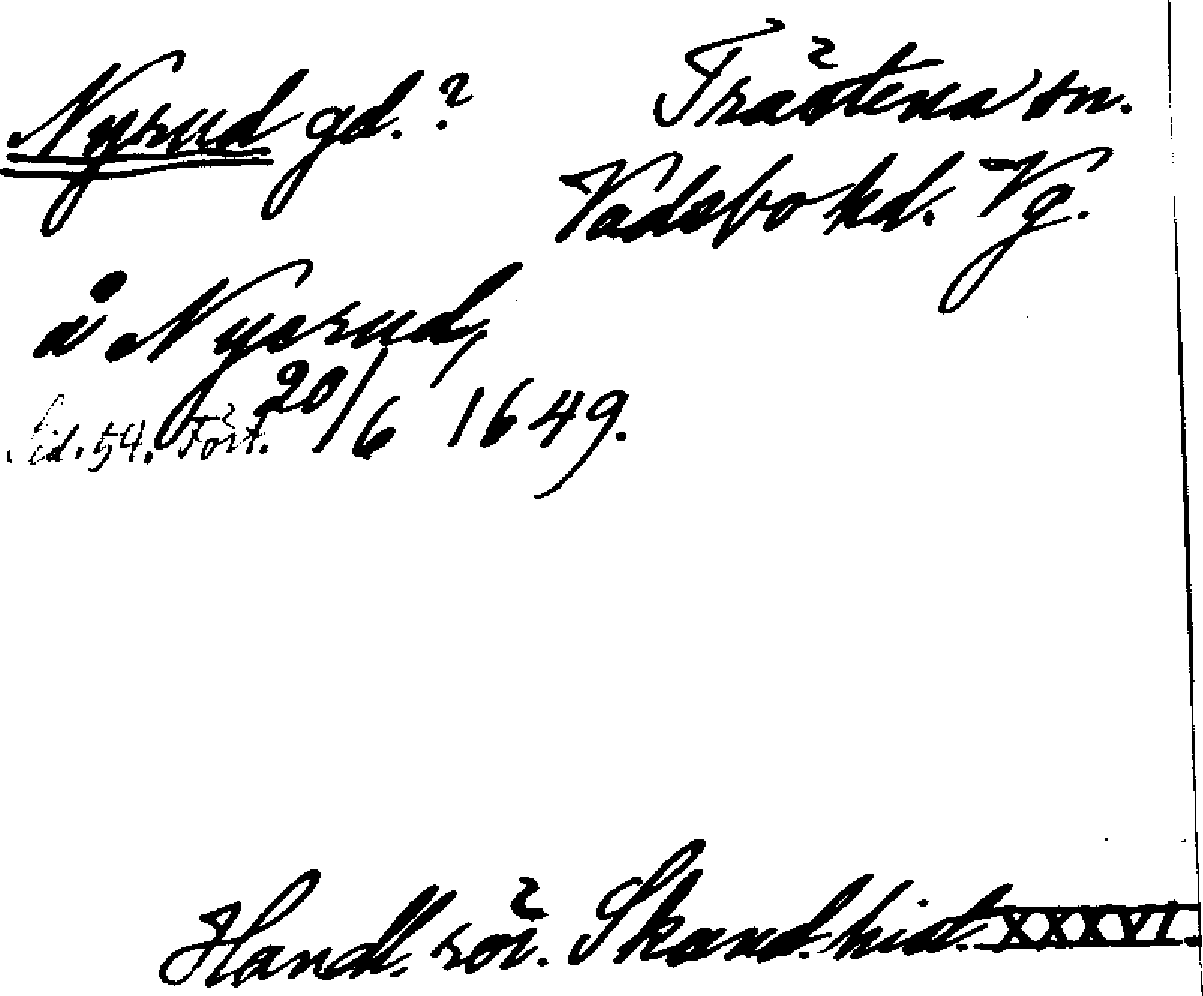 Nyrud gd.? Trästena sn.
Vadsbo hd. Vg.
å Nyerud,
Sid. 54. Fört. 20/6 1649.
Handl. rör. Skand. hist. XXXVI.